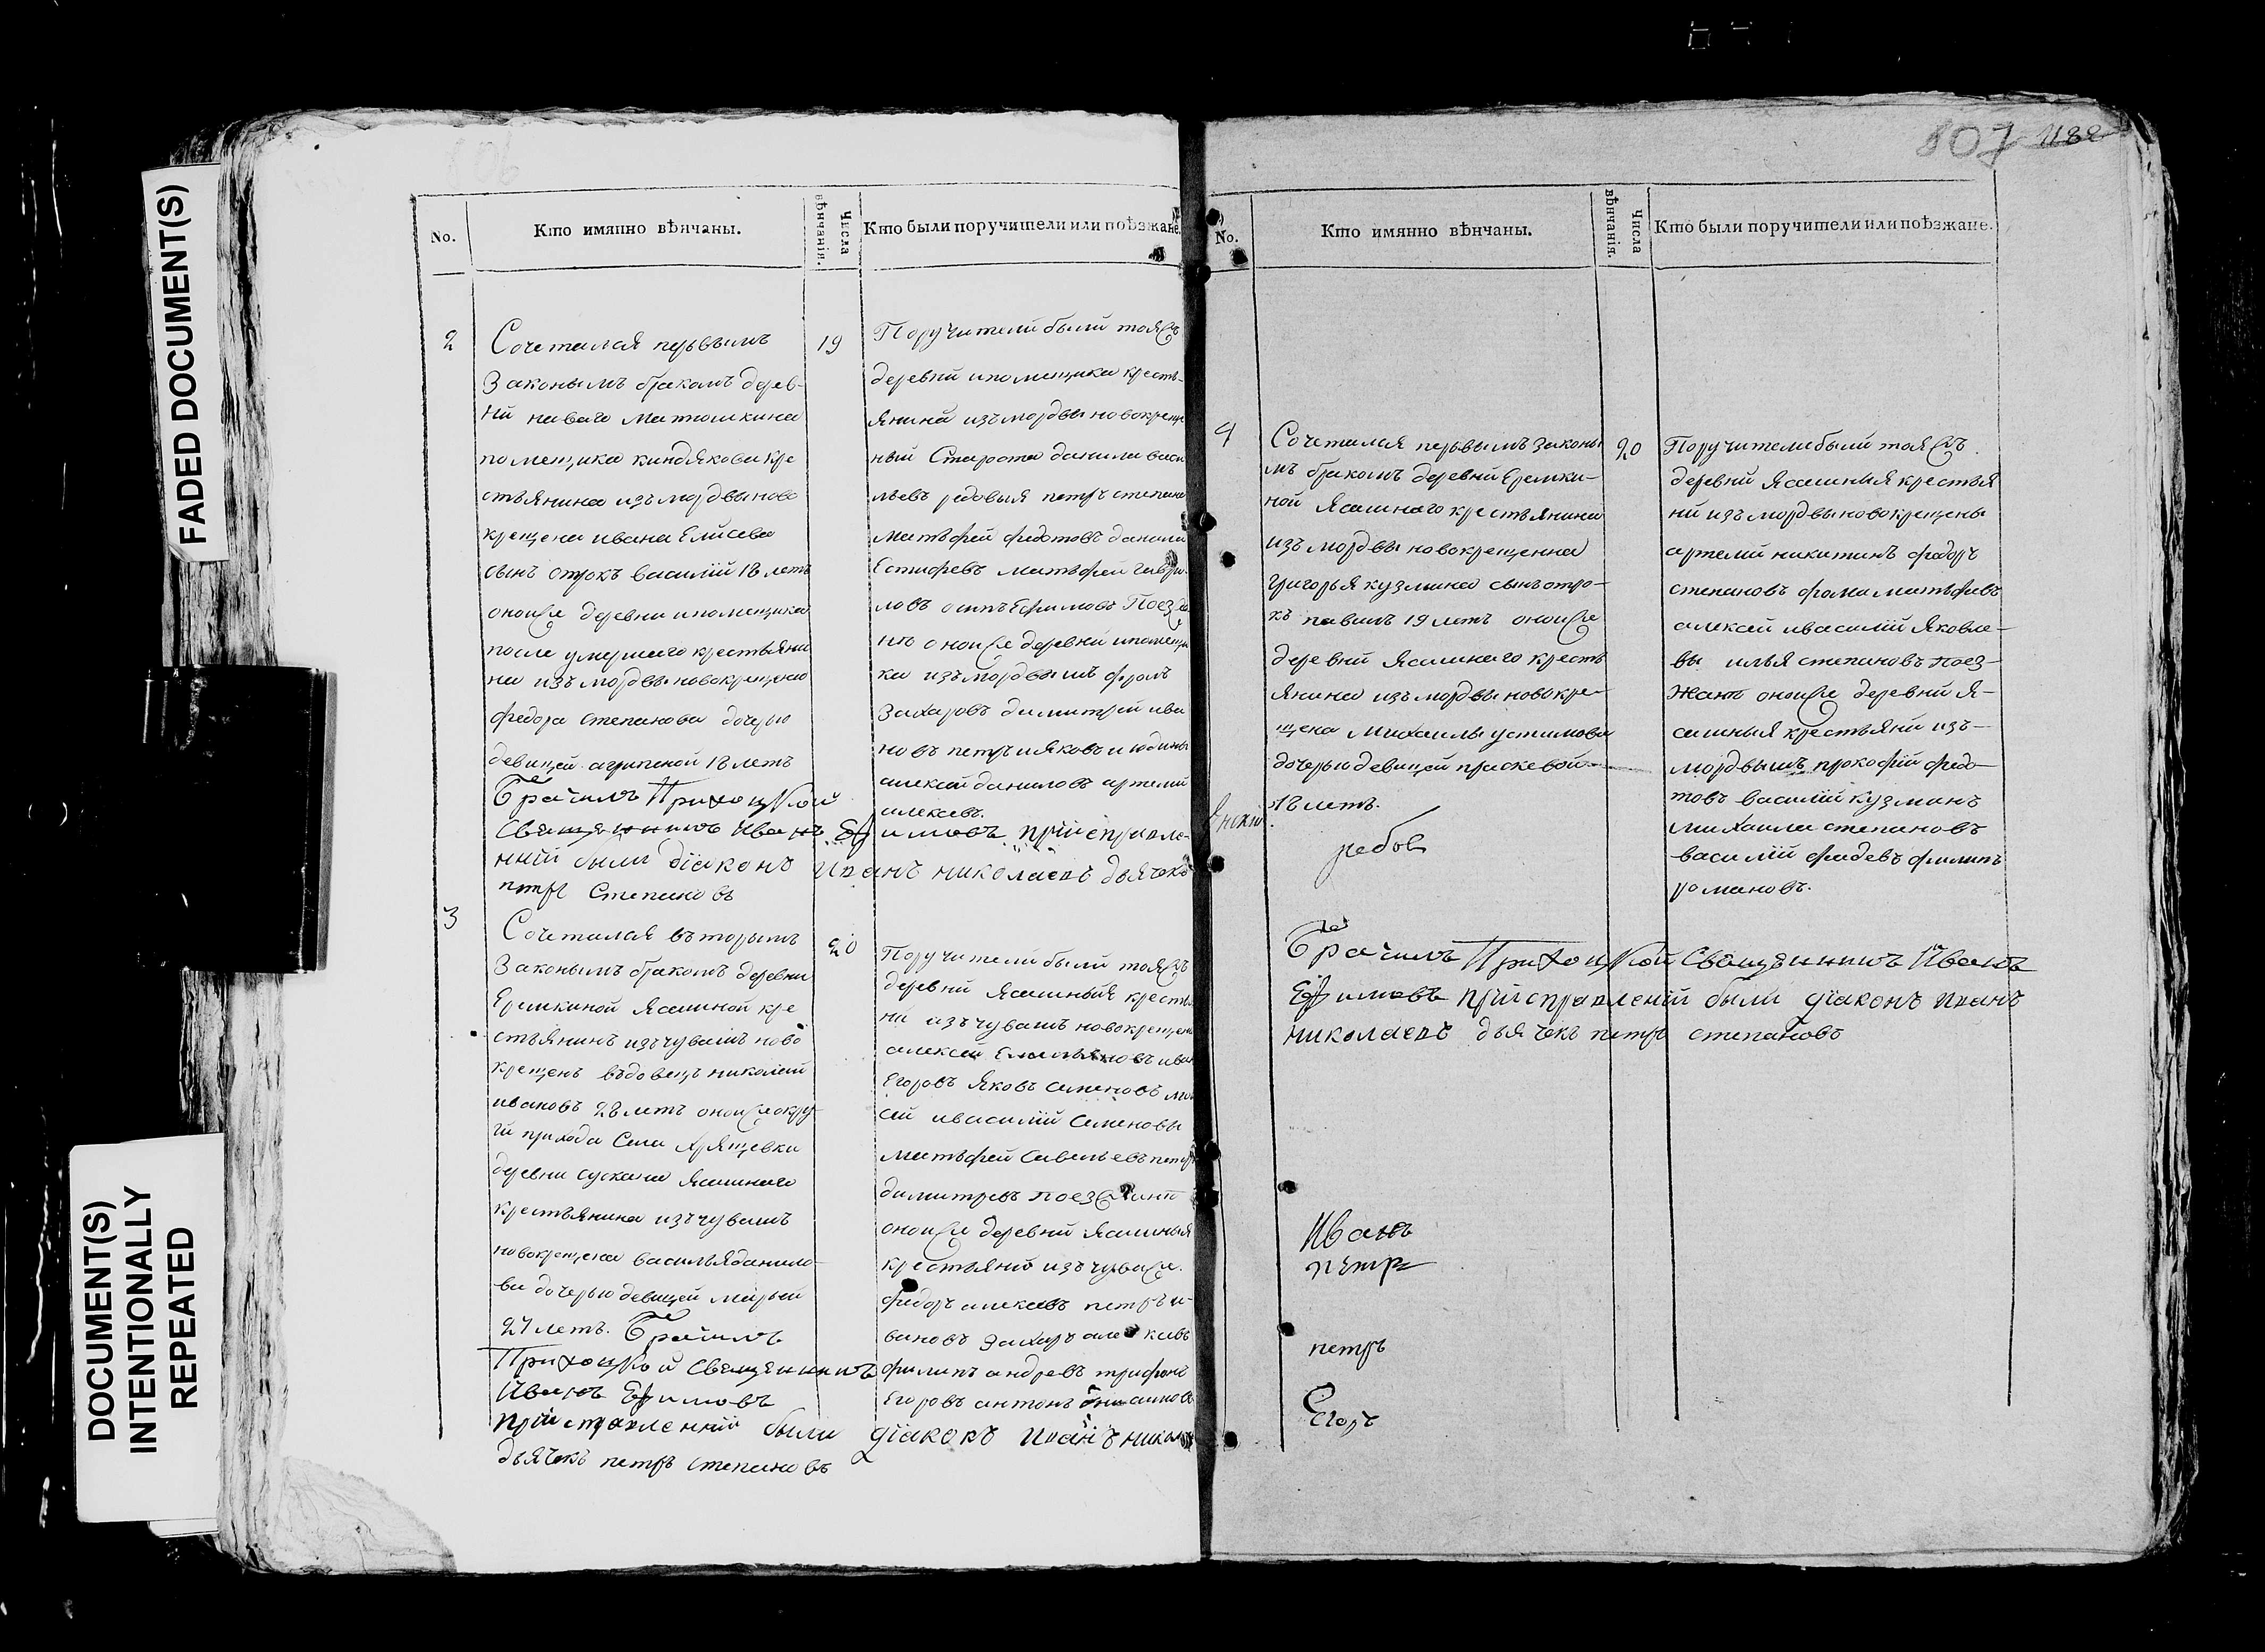 FADED DOCUMENT(S)
DOCUMENT(S)
INTENTIONALLY
REPEATED
No.
Кто имянно вѣнчаны.
Числа
вѣнчанія.
Кто были поручители или поѣзжане.
2
Сочетался первымъ
Законымъ бракомъ дерев-
ни наваго Матюшкина
помещика киндякова кре
стьянина изъ мордвы ново
крещена ивана Елисеева
сынъ отрокъ василий 18 летъ
оной же деревни и помещика
после умершаго крестьяни
на изъ мордвы новокрещена
федора степанова дочерью
девицей агрипеной 18 летъ
19
Поручители были тояжъ
деревни и помещика кресть-
янина изъ мордвы новокреще
ный Староста данила васи
льевъ редовыя петръ степано
матьфей федотовъ данила
Естифеевъ матьфей гаври-
ловъ осипъ Ефимовъ Поезжа
нъ оной же деревни и помещи
ка изъ мордвы фролъ
Захаровъ димитрей ива
новъ петръ и яковъ и юдины
алексей даниловъ артемий
алексевъ.
Брачилъ Приходцкой
Священникъ Иванъ Ефимовъ при исправле-
нии были діаконъ иванъ николаевъ дьячекъ
петръ Степановъ
3
Сочетался въторымъ
Законымъ бракомъ деревни
Еремкиной Ясашной кре
стьянинъ изъ чувашъ ново
крещенъ въдовецъ николай
ивановъ 28 летъ оной же окру
ги прихода Села Хрящевки
деревни сускана Ясашнаго
крестьянина изъ чувашъ
новокрещена василья данило-
ва дочерью девицей марьей
27 летъ. Брачилъ
Приходцкой Священникъ
Иванъ Ефимовъ
при исправлении были діаконъ иванъ никола
дьячекъ петръ степановъ
20
Поручители были тояжъ
деревни Ясашныя кресть
ни изъ чувашъ новокрещены
алексей Емельяновъ иван
Егоровъ Яковъ Семеновъ мои
сей и василий Семеновы
матьфей Савельевъ петръ
димитревъ поезжанъ
оной же деревни ясашныя
крестьяни изъ чуваже
федоръ алексевъ петръ и-
вановъ Захаръ алексевъ
филипъ андревъ трифонъ
Егоровъ антонъ
807 1182
No.
Кто имянно вѣнчаны.
Числа
вѣнчанія.
Кто были поручители или поѣзжане.
4
Сочетался первымъ Законы
мъ бракомъ деревни Еремки-
ной Ясашнаго крестьянина
изъ мордвы новокрещенна
григорья кузмина сынъ отро-
къ павилъ 19 летъ оной же
деревни ясашнаго кресть
янина изъ мордвы новокре-
щена михаилы устимова
дочерью девицей праскевой
18 летъ.
20
Поручители были тояжъ
деревни Ясашныя крестья
ни изъ мордвы новокрещены
артемий никитинъ федоръ
степановъ фома матьфевъ
алексей и василий Яковле-
вы илья степановъ поез-
жанъ оной же деревни я-
сашныя крестьяни изъ-
мордвышъ прокофий федо
товъ василий кузминъ
михаила степановъ
василий фадевъ филипъ
романовъ.
Брачилъ Приходцкой Священникъ Иванъ
Ефимовъ при исправлении были діаконъ иванъ
николаевъ дьячекъ петръ степановъ
Иванъ
петръ
петръ
Егоръ